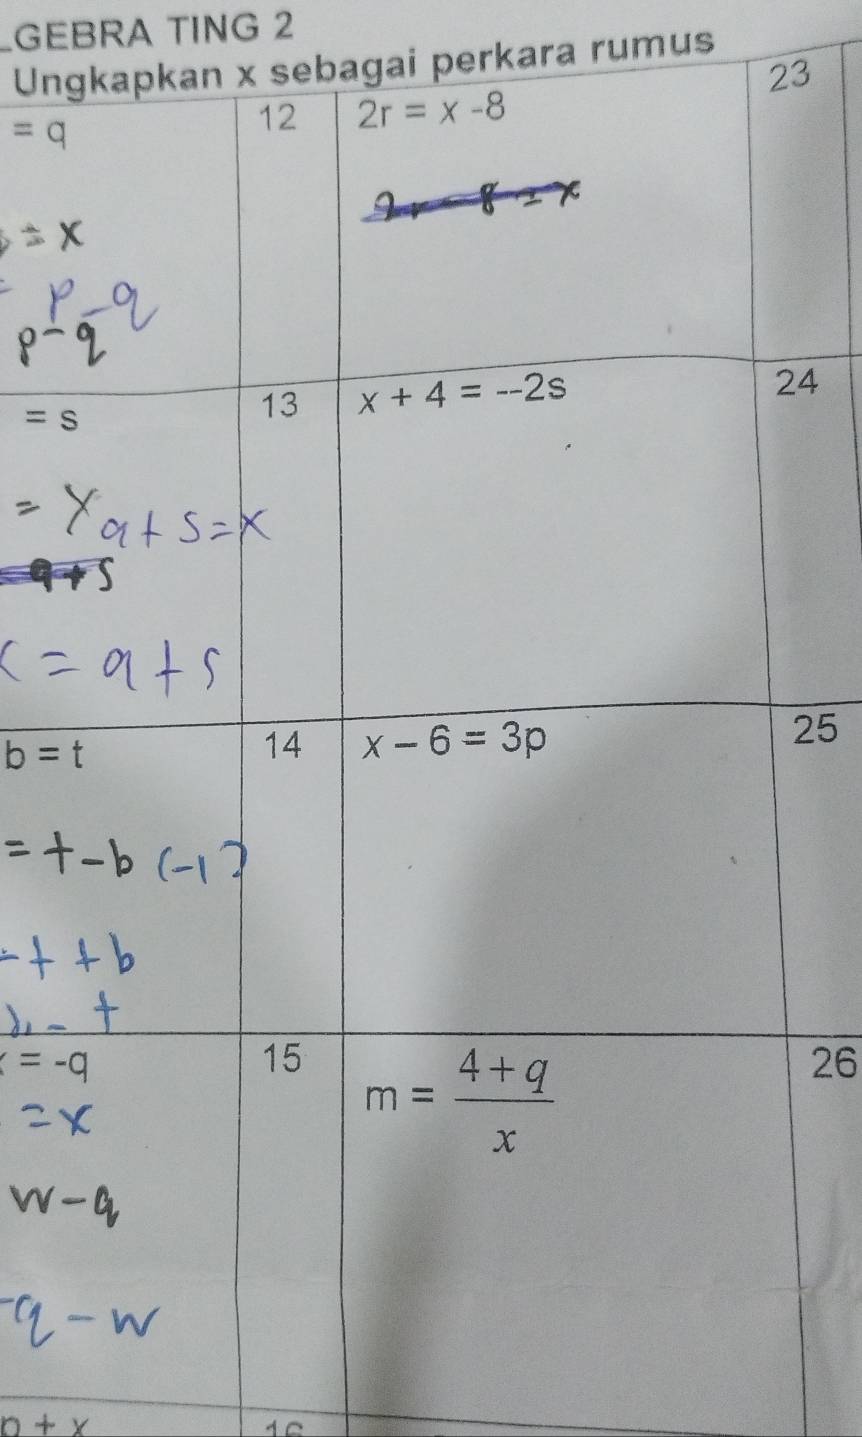 LGEBRA TING 2
Ungkapkan x sebagai perkara rumus
= q
= x
p - q
p - q
12 2r = x -8
2r - 8 = x
23
= s
= x
a + s = x
a + s
= a + s
13 x + 4 = --2s
24
b = t
= t - b (-1)
- t + b
- t
14 x – 6 = 3p
25
= -q
= x
w - q
-q - w
15 m = 4 + q
x
26
+ x
16